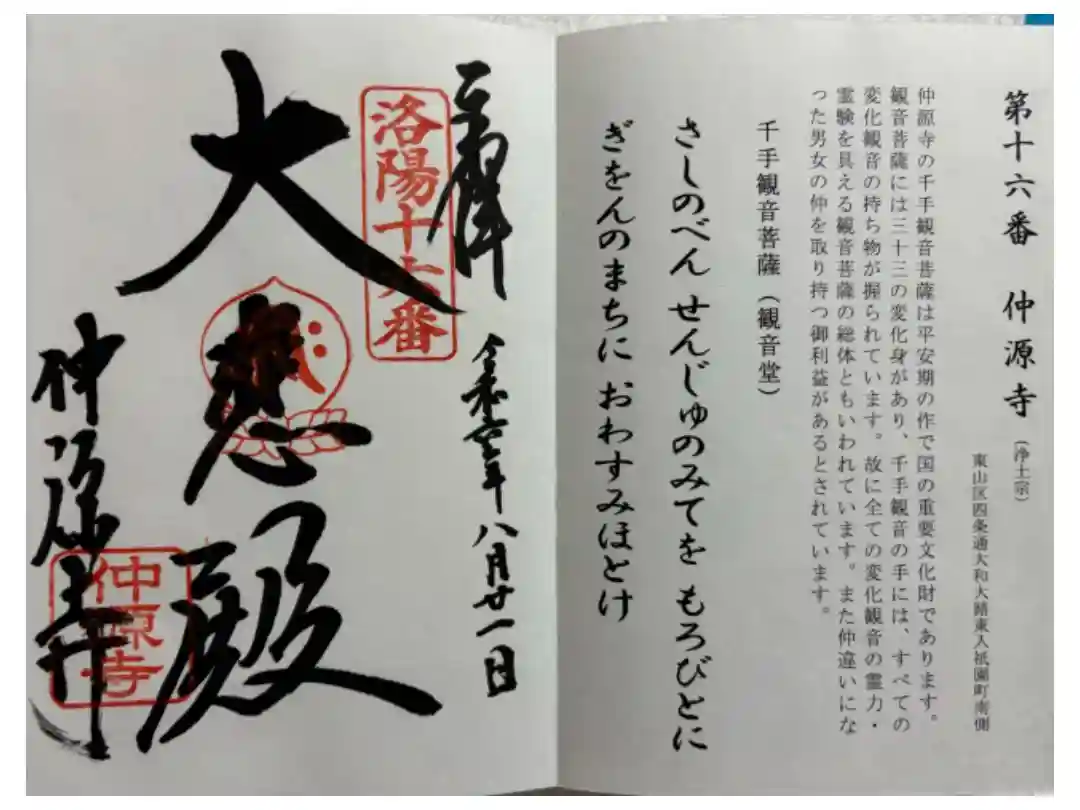 第十六番 仲源寺(浄土宗)
東山区四条通大和大路東入祇園町南側
仲源寺の千手観音菩薩は平安期の作で国の重要文化財であります。
観音菩薩には三十三の変化身があり、千手観音の手には、すべての
変化観音の持ち物が握られています。故に全ての変化観音の霊力・
霊験を具える観音菩薩の総体ともいわれています。また仲違いにな
った男女の仲を取り持つ御利益があるとされています。
千手観音菩薩(観音堂)
さしのべん せんじゅのみてを もろびとに
ぎをんのまちに おわすみほとけ
奉拝
令和六年八月廿一日
洛陽十六番
大悲殿
仲源寺
仲源寺